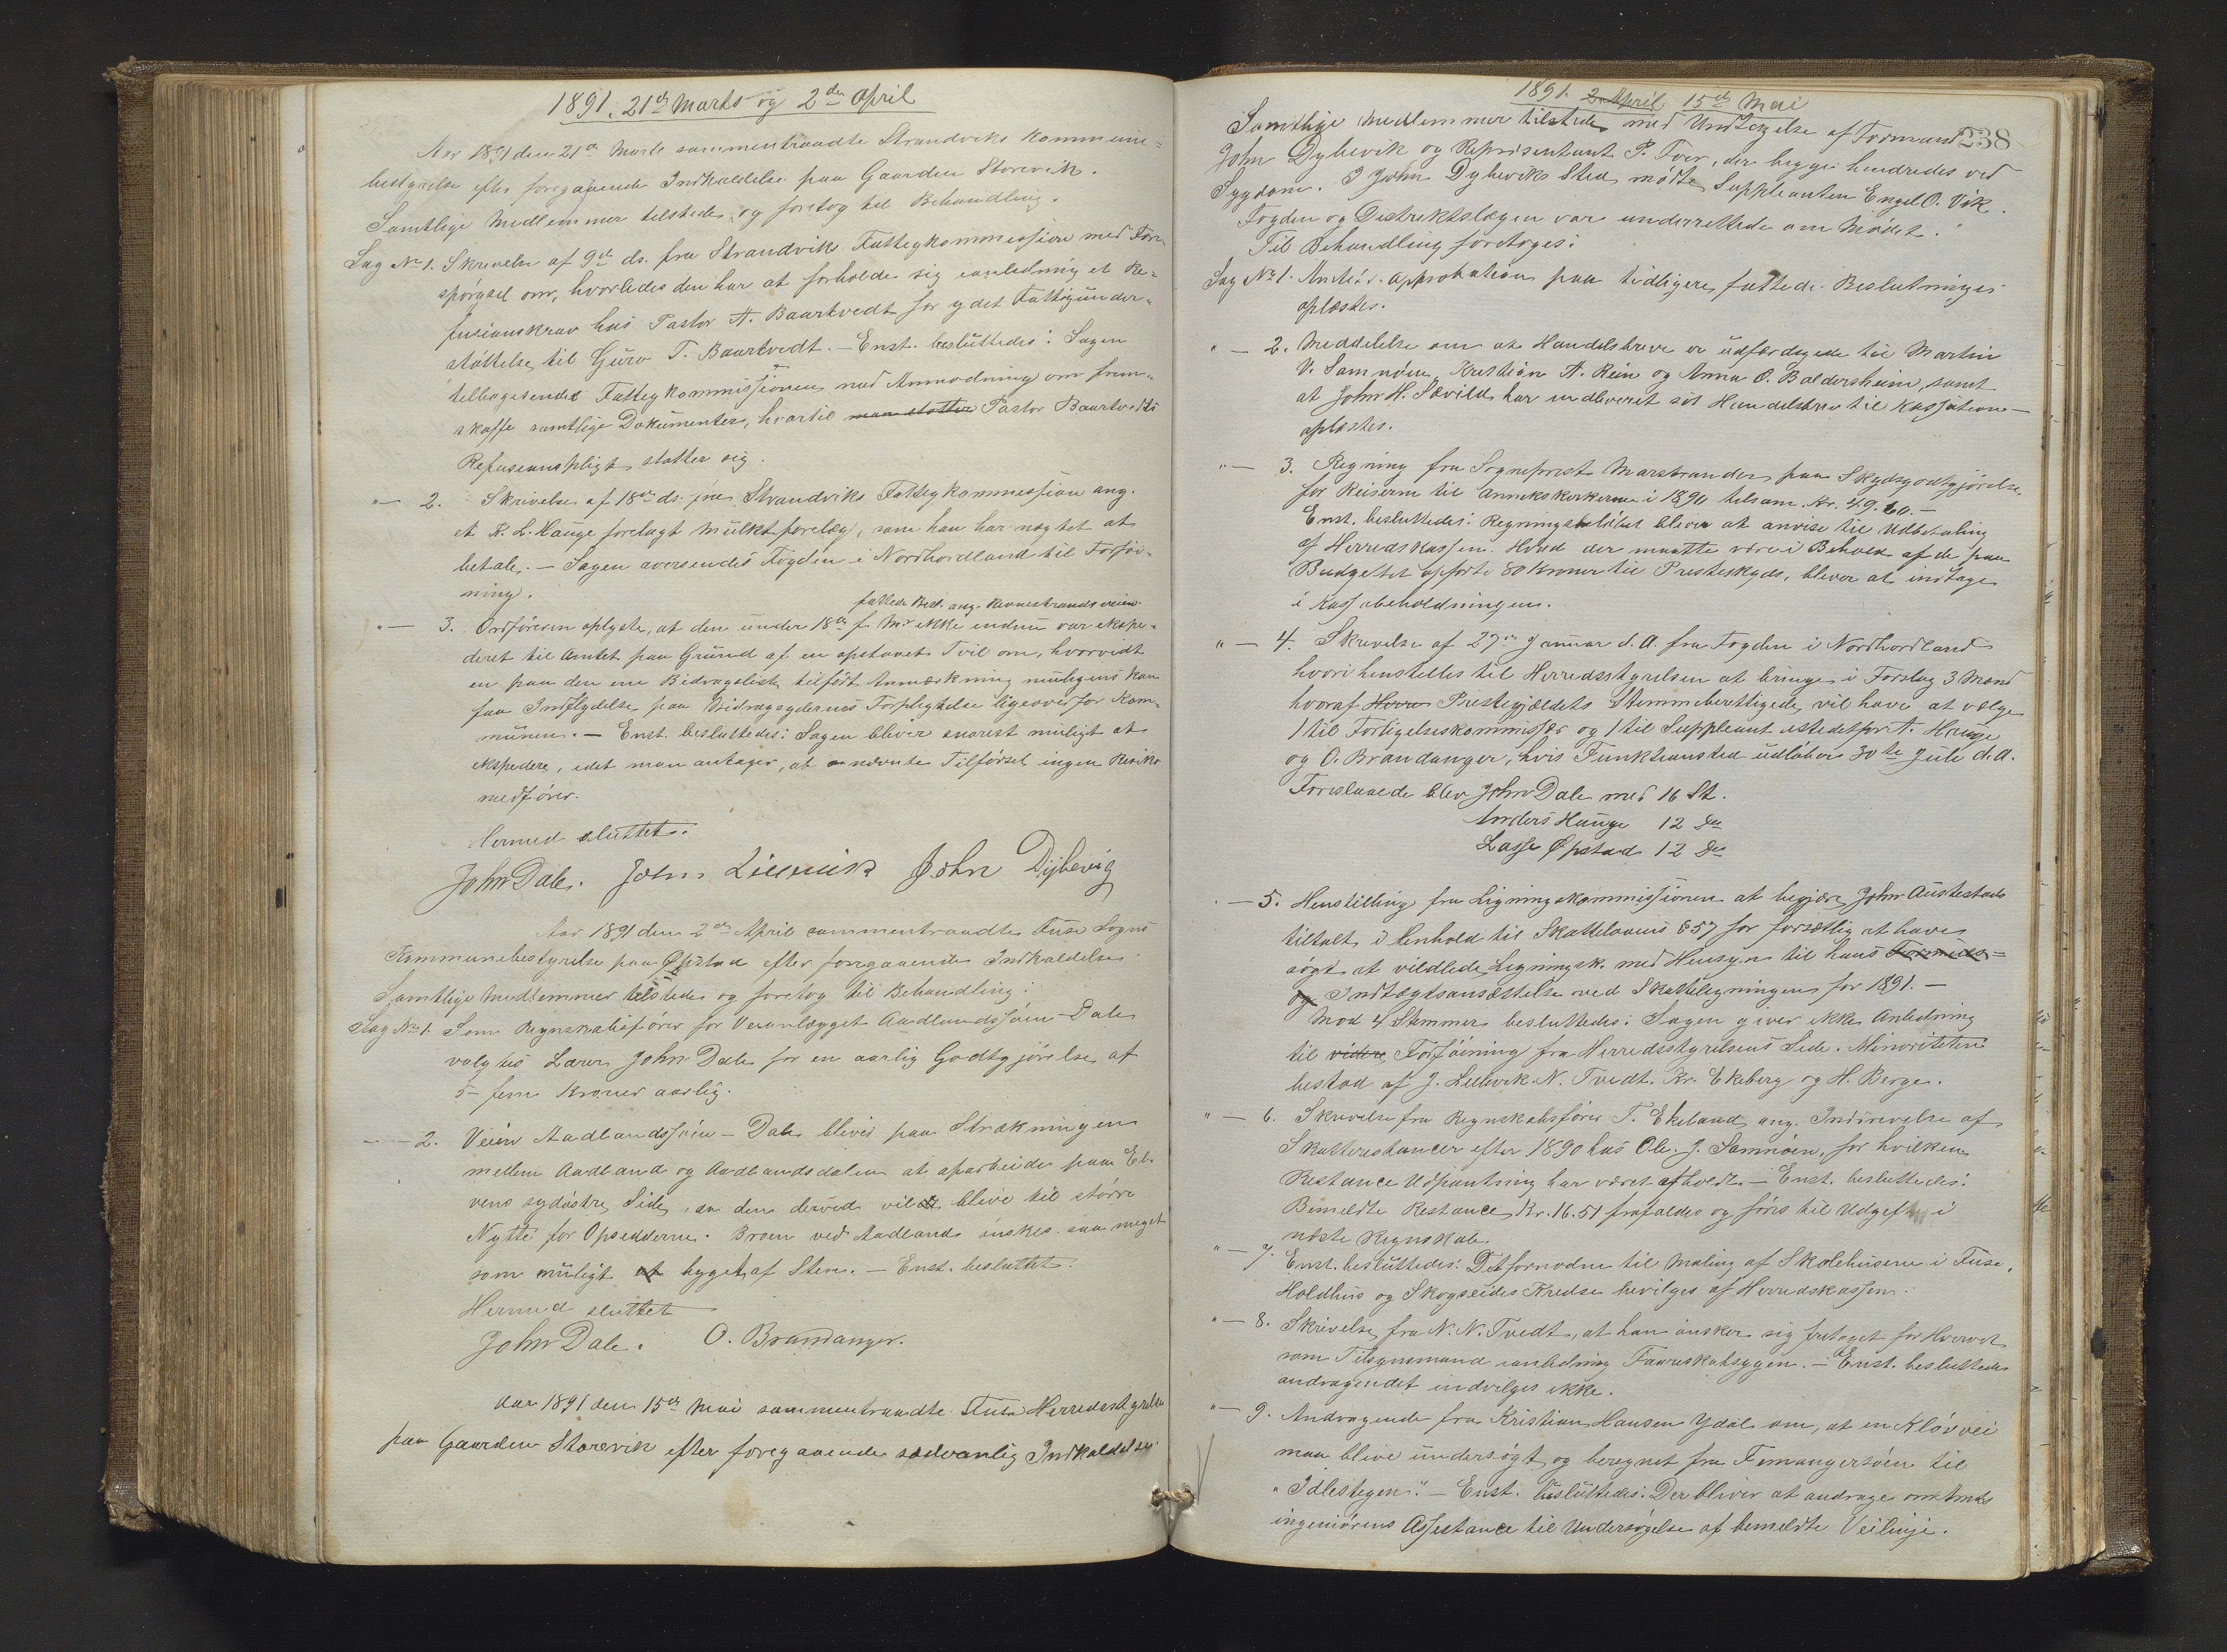 1891. 21de Marts og 2den April
Aar 1891 den 21de Marts sammentraadte Strandviks Kommune=
bestyrelse efter foregaaende Indkaldelse paa Gaarden Storevik.
Samtlige Medlemmer tilstede og foretog til Behandling.
Sag No 1. Skrivelse af 9de ds. fra Strandvik Fattigkommission med Fore-
spørgsel om, hvorledes den har at forholde sig ianledning et Re-
fusionskrav hos Pastor A. Baartvedt for ydet Fattigunder-
støttelse til Guro T. Baartvedt. – Enst. besluttedes: Sagen
tilbagesendes Fattigkommissionen med Anmodning om frem-
skaffe samtlige Dokumenter, hvortil man støtter Pastor Baartvedts
Refusionspligt støtter sig.
"— 2. Skrivelse af 18de ds. fra Strandviks Fattigkommission ang.
et K. L. Hauge forelagt Mulktforelæg, som han har nægtet at
betale. – Sagen oversendes Fogden i Nordhordland til Forføi-
ning.
fattede Besl. ang. Revnestrandsveien
"— 3. Ordføreren oplyste, at den under 18de f. M. ikke endnu var ekspe-
deret til Amtet paa Grund af en opstaaet Tvil om, hvorvidt
en paa den ene Bidragsliste tilført Anmærkning muligens kan
faa Indflydelse paa Bidragsydernes Forpligtelse ligeoverfor Kom-
munen. – Enst. besluttedes: Sagen bliver snarest muligt at
ekspedere, idet man antager, at nævnte Tilførsel ingen Risiko
medfører.
Hermed sluttet.
John Dale. John Liervik John Dybevig
Aar 1891 den 2den April sammentraadte Fuse Sogns
Kommunebestyrelse paa Øpstad efter foregaaende Indkaldelse.
Samtlige Medlemmer tilstede og foretog til Behandling:
Sag No 1. Som Regnskabsfører for Veianlægget Aadlandssøin–Dale
valgtes Lærer John Dale for en aarlig Godtgjørelse af
5 – fem Kroner aarlig.
— 2. Veien Aadlandssøin – Dale bliver paa Strækningen
mellem Aadland og Aadlandsdalen at oparbeide paa El-
vens sydøstre Side, da den derved vil blive til større
Nytte for Opsidderne. Broen ved Aadland ønskes saa meget
som muligt at bygget af Sten. – Enst. besluttet.
Hermed sluttet
John Dale. O. Brandanger.
Aar 1891 den 15de Mai sammentraadte Fuse Herredsstyrelse
paa Gaarden Storevik efter foregaaende sædvanlig Indkaldelse.
1891. 2 April 15de Mai
238
Samtlige Medlemmer tilstede med Undtagelse af Formand
John Dybevik og Repræsentant P. Tver, der begge hindredes ved
Sygdom. I John Dybeviks Sted mødte Suppleanten Engel O. Vik.
Fogden og Distriktslægen var underrettede om Mødet.
Til Behandling foretoges:
Sag No 1. Amtets Approbation paa tidligere fattede Beslutninger
oplæstes.
"— 2. Meddelelse om at Handelsbreve er udfærdigede til Martin
V. Samnøen, Kristian A. Rein og Anna O. Baldersheim, samt
at John H. Skvild har indleveret sit Handelsbrev til Kassation –
oplæstes.
"— 3. Regning fra Sogneprest Marstrander paa Skydsgodtgjørelse
for Reiserne til Annekskirkerne i 1890 tilsam. Kr. 49.60. –
Enst. besluttedes: Regningsbeløbet bliver at anvise til Udbetaling
af Herredskassen. Hvad der maatte være i Behold af de paa
Budgettet opførte 80 Kroner til Presteskyds, bliver at indtage
i Kassebeholdningen.
"— 4. Skrivelse af 27de Januar d. A. fra Fogden i Nordhordland
hvori henstilles til Herredsstyrelsen at bringe i Forslag 3 Mænd
hvoraf Prestegjældets Stemmeberettigede vil have at vælge
1 til Forligelseskommissær og 1 til Suppleant istedetfor A. Hauge
og O. Brandanger, hvis Funktionstid udløber 30te Juli d. A.
Foreslaaede blev John Dale med 16 St.
Anders Hauge 12 do
Lasse Øpstad 12 do
— 5. Henstilling fra Ligningskommissionen at begjære John Austestads
tiltalt i Henhold til Skattelovens § 57 for forsætlig at have
søgt at vildlede Ligningsk. med Hensyn til hans Formues=
og Indtægtsansættelse ved Skatteligningen for 1891. –
Mod 4 Stemmer besluttedes: Sagen giver ikke Anledning
til videre Forføining fra Herredsstyrelsens Side. Minoriteten
bestod af J. Liervik. N. Tvedt. Kr. Ekeberg og H. Berge.
"— 6. Skrivelse fra Regnskabsfører T. Ekeland ang. Inddrivelse af
Skatterestancer efter 1890 hos Ole J. Samnøen, for hvilken
Restance Udpantning har været afholdt. – Enst. besluttedes:
Bemeldte Restance Kr. 16.51 frafaldes og føres til Udgift i
næste Regnskab.
"— 7. Enst. besluttedes: Det fornødne til Maling af Skolehusene i Fuse,
Holdhus og Skogseides Kredse bevilges af Herredskassen.
"— 8. Skrivelse fra N. N. Tvedt, at han ønsker sig fritaget for Hvervet
som Tilsynsmand ianledning Faareskabsygen. – Enst. besluttedes
andragendet indvilges ikke.
"— 9. Andragende fra Kristian Hansen Ydal om, at en Kløvvei
maa blive undersøgt og beregnet fra Femangersøien til
"Idlestegen". – Enst. besluttedes: Der bliver at andrage om Amts
ingeniørens Assistance til Undersøgelse af bemeldte Veilinje.